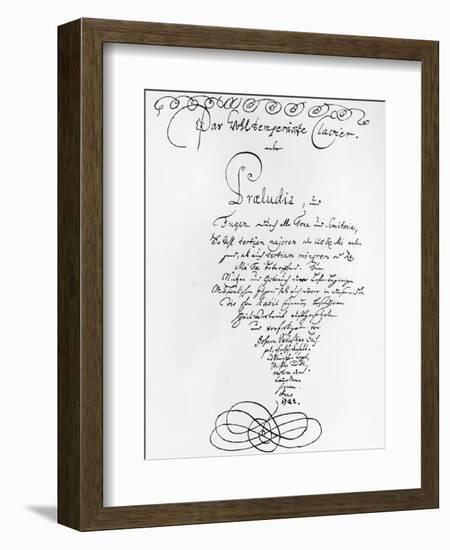 Das Wohltemperirte Clavier.
oder
Præludia, und
Fugen durch alle Tone und Semitonia,
So wohl tertiam majorem oder Ut Re Mi anlan-
gend, als auch tertiam minorem oder Re
Mi Fa betreffend. Zum
Nutzen und Gebrauch der Lehrbegierigen
Musicalischen Jugend, als auch derer in diesem stu-
dio schon habil seyenden besonderem
Zeit Vertreib auffgesetzet
und verfertiget von
Johann Sebastian Bach
Anno
1722.